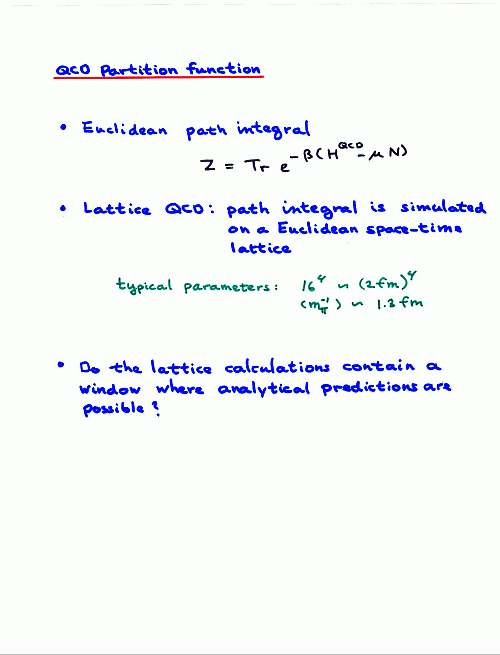 QCD Partition function
• Euclidean path integral
Z = Tr e^{-β(H^{QCD} - μN)}
• Lattice QCD: path integral is simulated
on a Euclidean space-time
lattice
typical parameters: 16⁴ ~ (2fm)⁴
(m_π^{-1}) ~ 1.2 fm
• Do the lattice calculations contain a
window where analytical predictions are
possible?